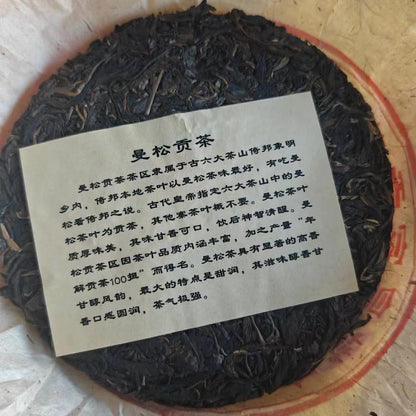 曼松贡茶
曼松贡茶茶区隶属于古六大茶山倚邦象明
乡内，倚邦本地茶叶以曼松茶味最好，有吃曼
松看倚邦之说。古代皇帝指定六大茶山中的曼
松茶叶为贡茶，其他寨茶叶概不要。曼松茶叶
质厚味美，其味甘香可口，饮后神智清醒。曼
松贡茶区因茶叶品质内涵丰富，加之产量“年
解贡茶100担”而得名。曼松茶具有显著的高香
甘醇风韵，最大的特点是甜润，其滋味醇香甘
香口感圆润，茶气极强。